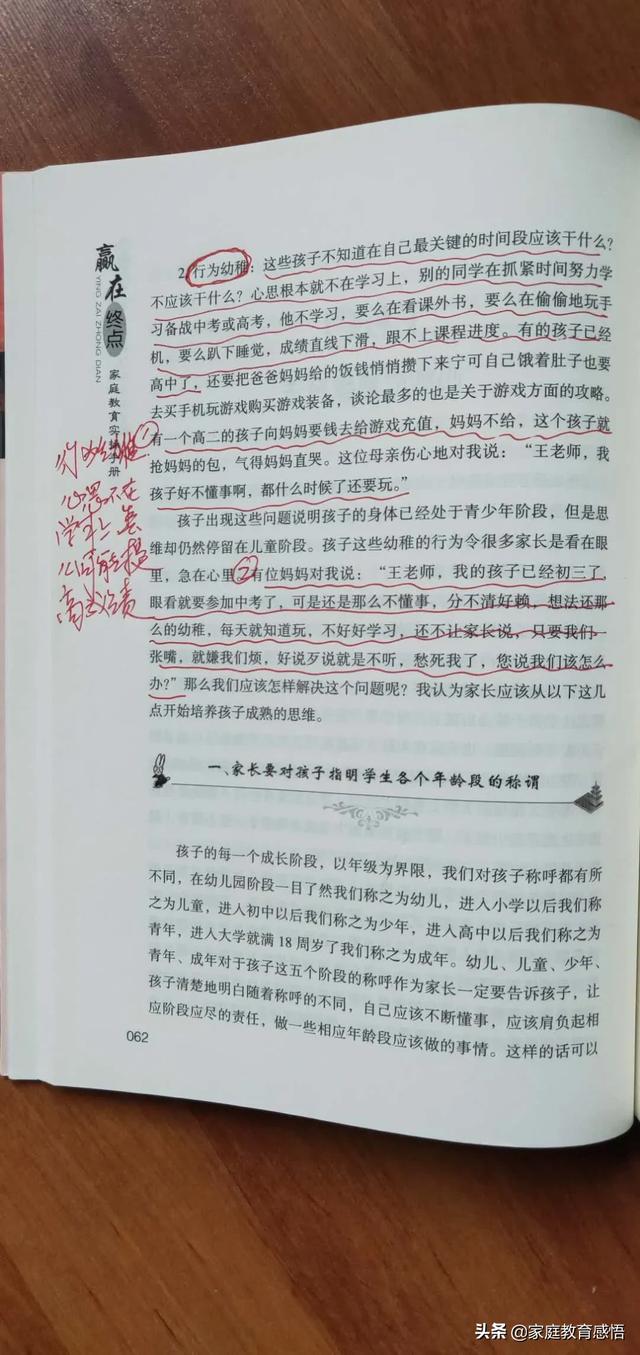 赢在终点
YING ZAI ZHONG DIAN
家庭教育实
册
2.行为幼稚：这些孩子不知道在自己最关键的时间段应该干什么？
不应该干什么？心思根本就不在学习上，别的同学在抓紧时间努力学
习备战中考或高考，他不学习，要么在看课外书，要么在偷偷地玩手
机，要么趴下睡觉，成绩直线下滑，跟不上课程进度。有的孩子已经
高中了，还要把爸爸妈妈给的饭钱悄悄攒下来宁可自己饿着肚子也要
去买手机玩游戏购买游戏装备，谈论最多的也是关于游戏方面的攻略。
①
有一个高二的孩子向妈妈要钱去给游戏充值，妈妈不给，这个孩子就
抢妈妈的包，气得妈妈直哭。这位母亲伤心地对我说：“王老师，我
孩子好不懂事啊，都什么时候了还要玩。”
孩子出现这些问题说明孩子的身体已经处于青少年阶段，但是思
维却仍然停留在儿童阶段。孩子这些幼稚的行为令很多家长是看在眼
里，急在心里②有位妈妈对我说：“王老师，我的孩子已经初三了，
眼看就要参加中考了，可是还是那么不懂事，分不清好赖，想法还那
么的幼稚，每天就知道玩，不好好学习，还不让家长说，只要我们一
张嘴，就嫌我们烦，好说歹说就是不听，愁死我了，您说我们该怎么
办？”那么我们应该怎样解决这个问题呢？我认为家长应该从以下这几
点开始培养孩子成熟的思维。
行为幼稚
心思不在
学习上 怎
么可能提
高成绩
一、家长要对孩子指明学生各个年龄段的称谓
孩子的每一个成长阶段，以年级为界限，我们对孩子称呼都有所
不同，在幼儿园阶段一目了然我们称之为幼儿，进入小学以后我们称
之为儿童，进入初中以后我们称之为少年，进入高中以后我们称之为
青年，进入大学就满 18 周岁了我们称之为成年。幼儿、儿童、少年、
青年、成年对于孩子这五个阶段的称呼作为家长一定要告诉孩子，让
孩子清楚地明白随着称呼的不同，自己应该不断懂事，应该肩负起相
应阶段应尽的责任，做一些相应年龄段应该做的事情。这样的话可以
062
头条 @家庭教育感悟